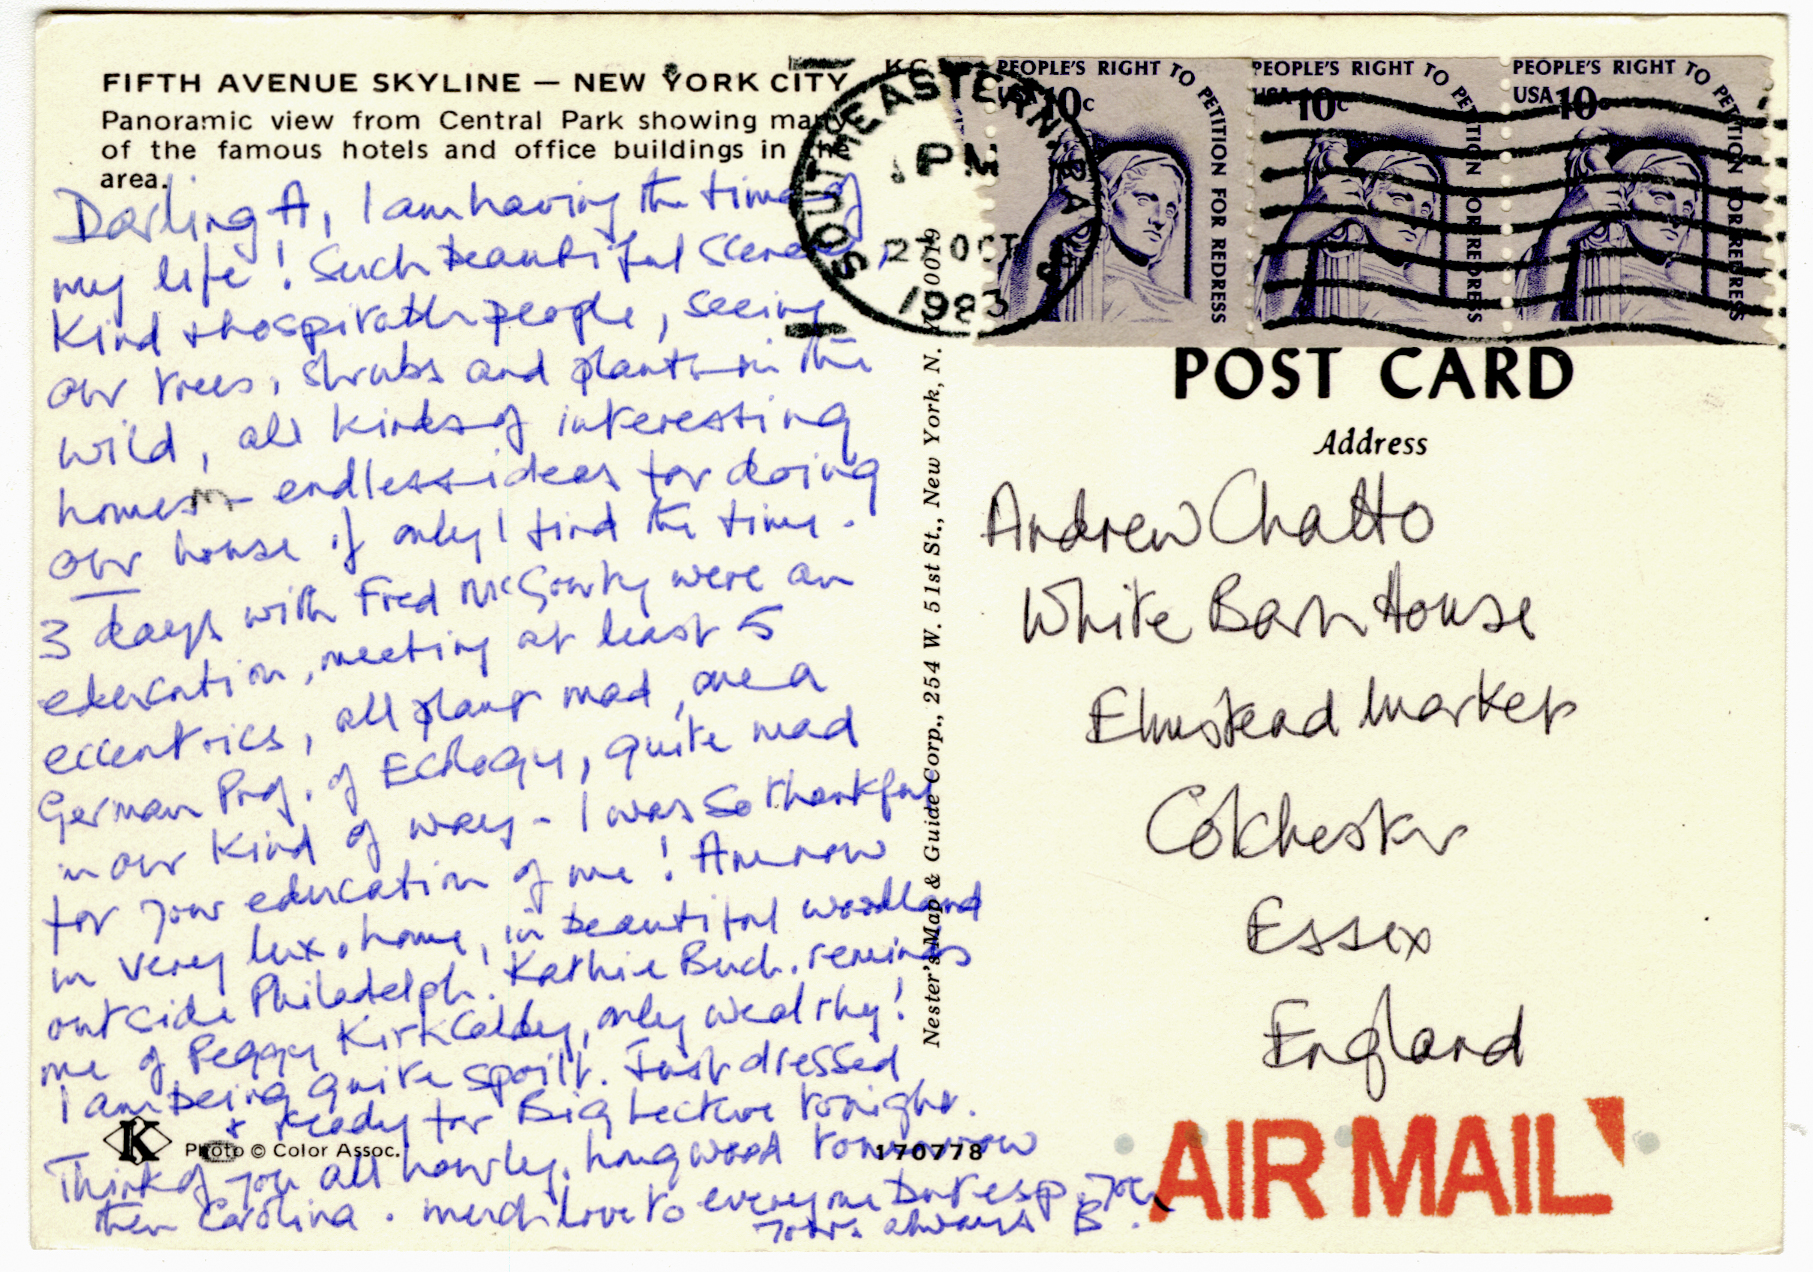 FIFTH AVENUE SKYLINE — NEW YORK CITY
Panoramic view from Central Park showing many
of the famous hotels and office buildings in the
area.
Darling A, I am having the time of
my life! Such beautiful scenery,
Kind + hospitable people, seeing
our trees, shrubs and plants in the
wild, all kinds of interesting
homes – endless ideas for doing
our house if only I find the time.
3 days with Fred McGourty were an
education, meeting at least 5
eccentrics, all plant mad, one a
German Prof. of Ecology, quite mad
in our kind of way – I was so thankful
for your education of me! Am now
in very lux. home, in beautiful woodland
outside Philadelph. Kathie Buch. reminds
me of Peggy Kirkcaldy, only wealthy!
I am being quite spoilt. Just dressed
+ ready for Big Lecture tonight.
Think of you all hourly. Longwood tomorrow
then Carolina. much love to everyone but esp. you
Yours always B.
K
Photo © Color Assoc.
170778
Nester's Map & Guide Corp., 254 W. 51st St., New York, N. 10019
SOUTHEASTERN, PA
PM
OCT
1983
PEOPLE'S RIGHT TO PETITION FOR REDRESS
USA 10c
PEOPLE'S RIGHT TO PETITION FOR REDRESS
USA 10c
PEOPLE'S RIGHT TO PETITION FOR REDRESS
USA 10c
POST CARD
Address
Andrew Chatto
White Barn House
Elmstead Market
Colchester
Essex
England
AIR MAIL